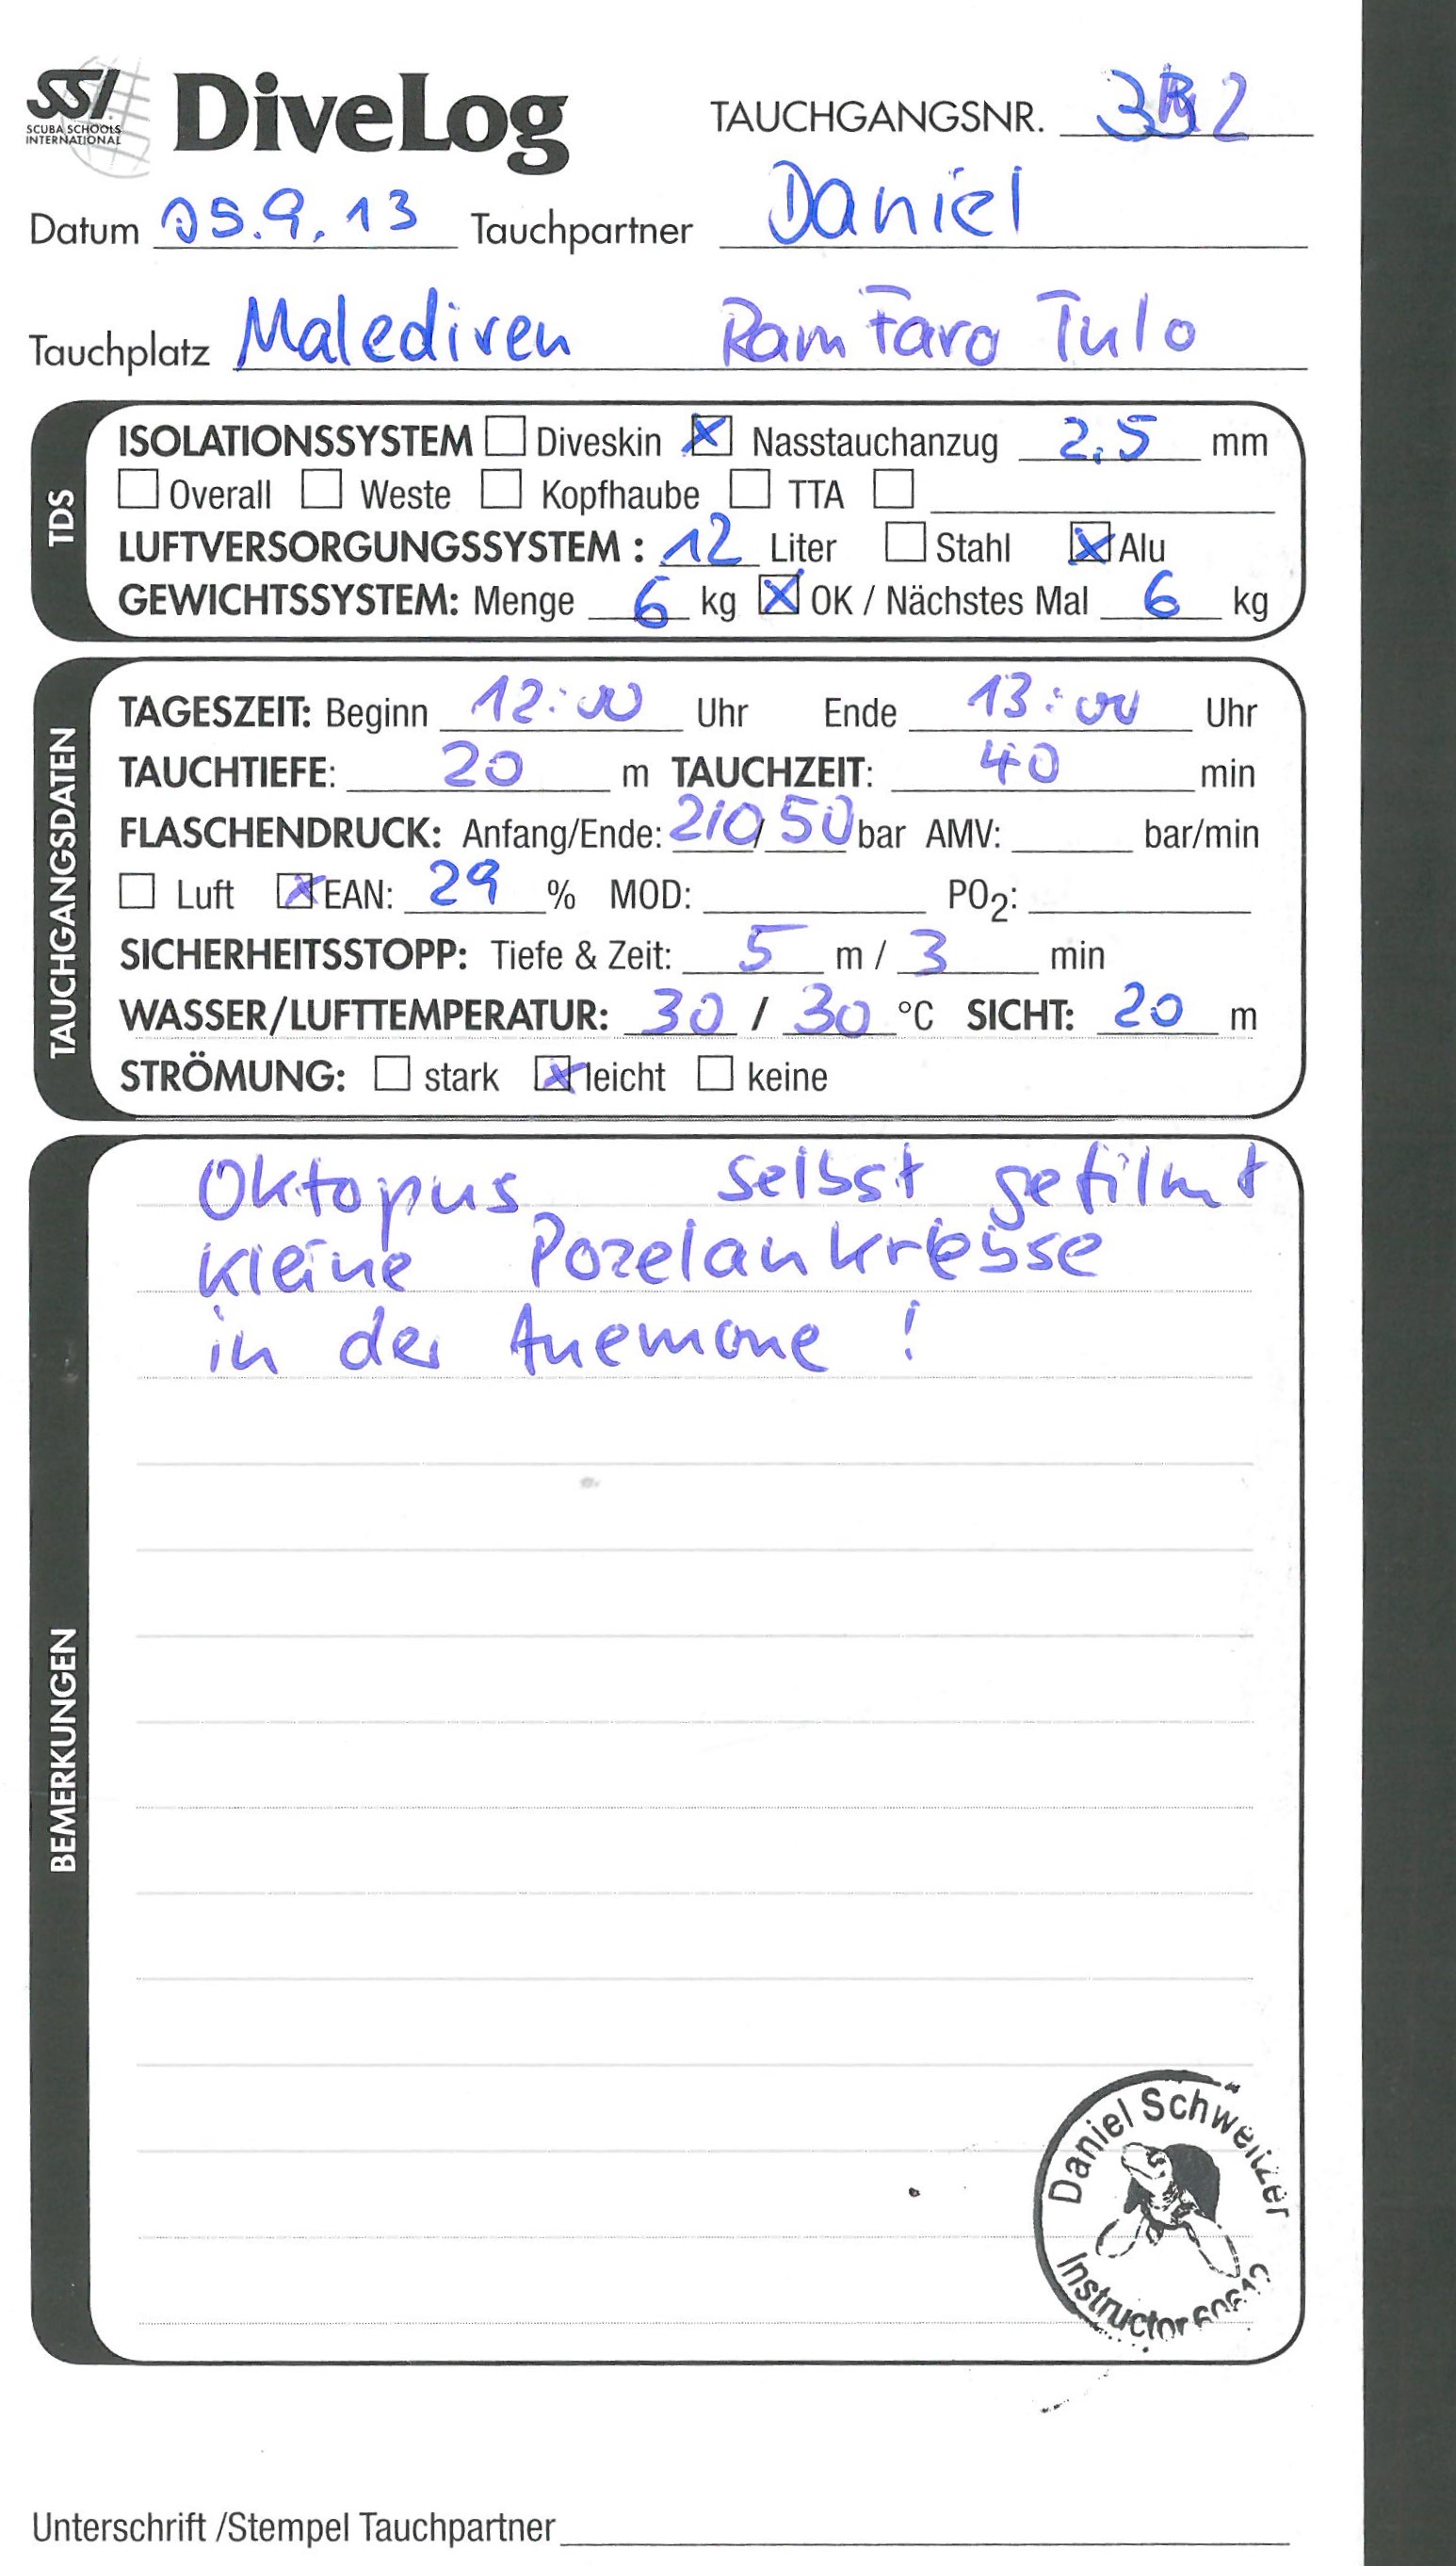 SSI DiveLog TAUCHGANGSNR.
SCUBA SCHOOLS
INTERNATIONAL
Datum 05.9.13 Tauchpartner Daniel
Tauchplatz Malediven Ram Faro Tulo
TDS
ISOLATIONSSYSTEM Diveskin Nasstauchanzug 2,5 mm
Overall Weste Kopfhaube TTA
LUFTVERSORGUNGSSYSTEM : 12 Liter Stahl Alu
GEWICHTSSYSTEM: Menge 6 kg OK / Nächstes Mal 6 kg
TAUCHGANGSDATEN
TAGESZEIT: Beginn 12:00 Uhr Ende 13:00 Uhr
TAUCHTIEFE: 20 m TAUCHZEIT: 40 min
FLASCHENDRUCK: Anfang/Ende: 210/50 bar AMV: bar/min
Luft EAN: 29 % MOD: PO2:
SICHERHEITSSTOPP: Tiefe & Zeit: 5 m / 3 min
WASSER/LUFTTEMPERATUR: 30 / 30 °C SICHT: 20 m
STRÖMUNG: stark leicht keine
BEMERKUNGEN
Oktopus selbst gefilmt
kleine Pozelankrebsse
in der Anemone !
Daniel Schweitzer
Instructor
Unterschrift /Stempel Tauchpartner